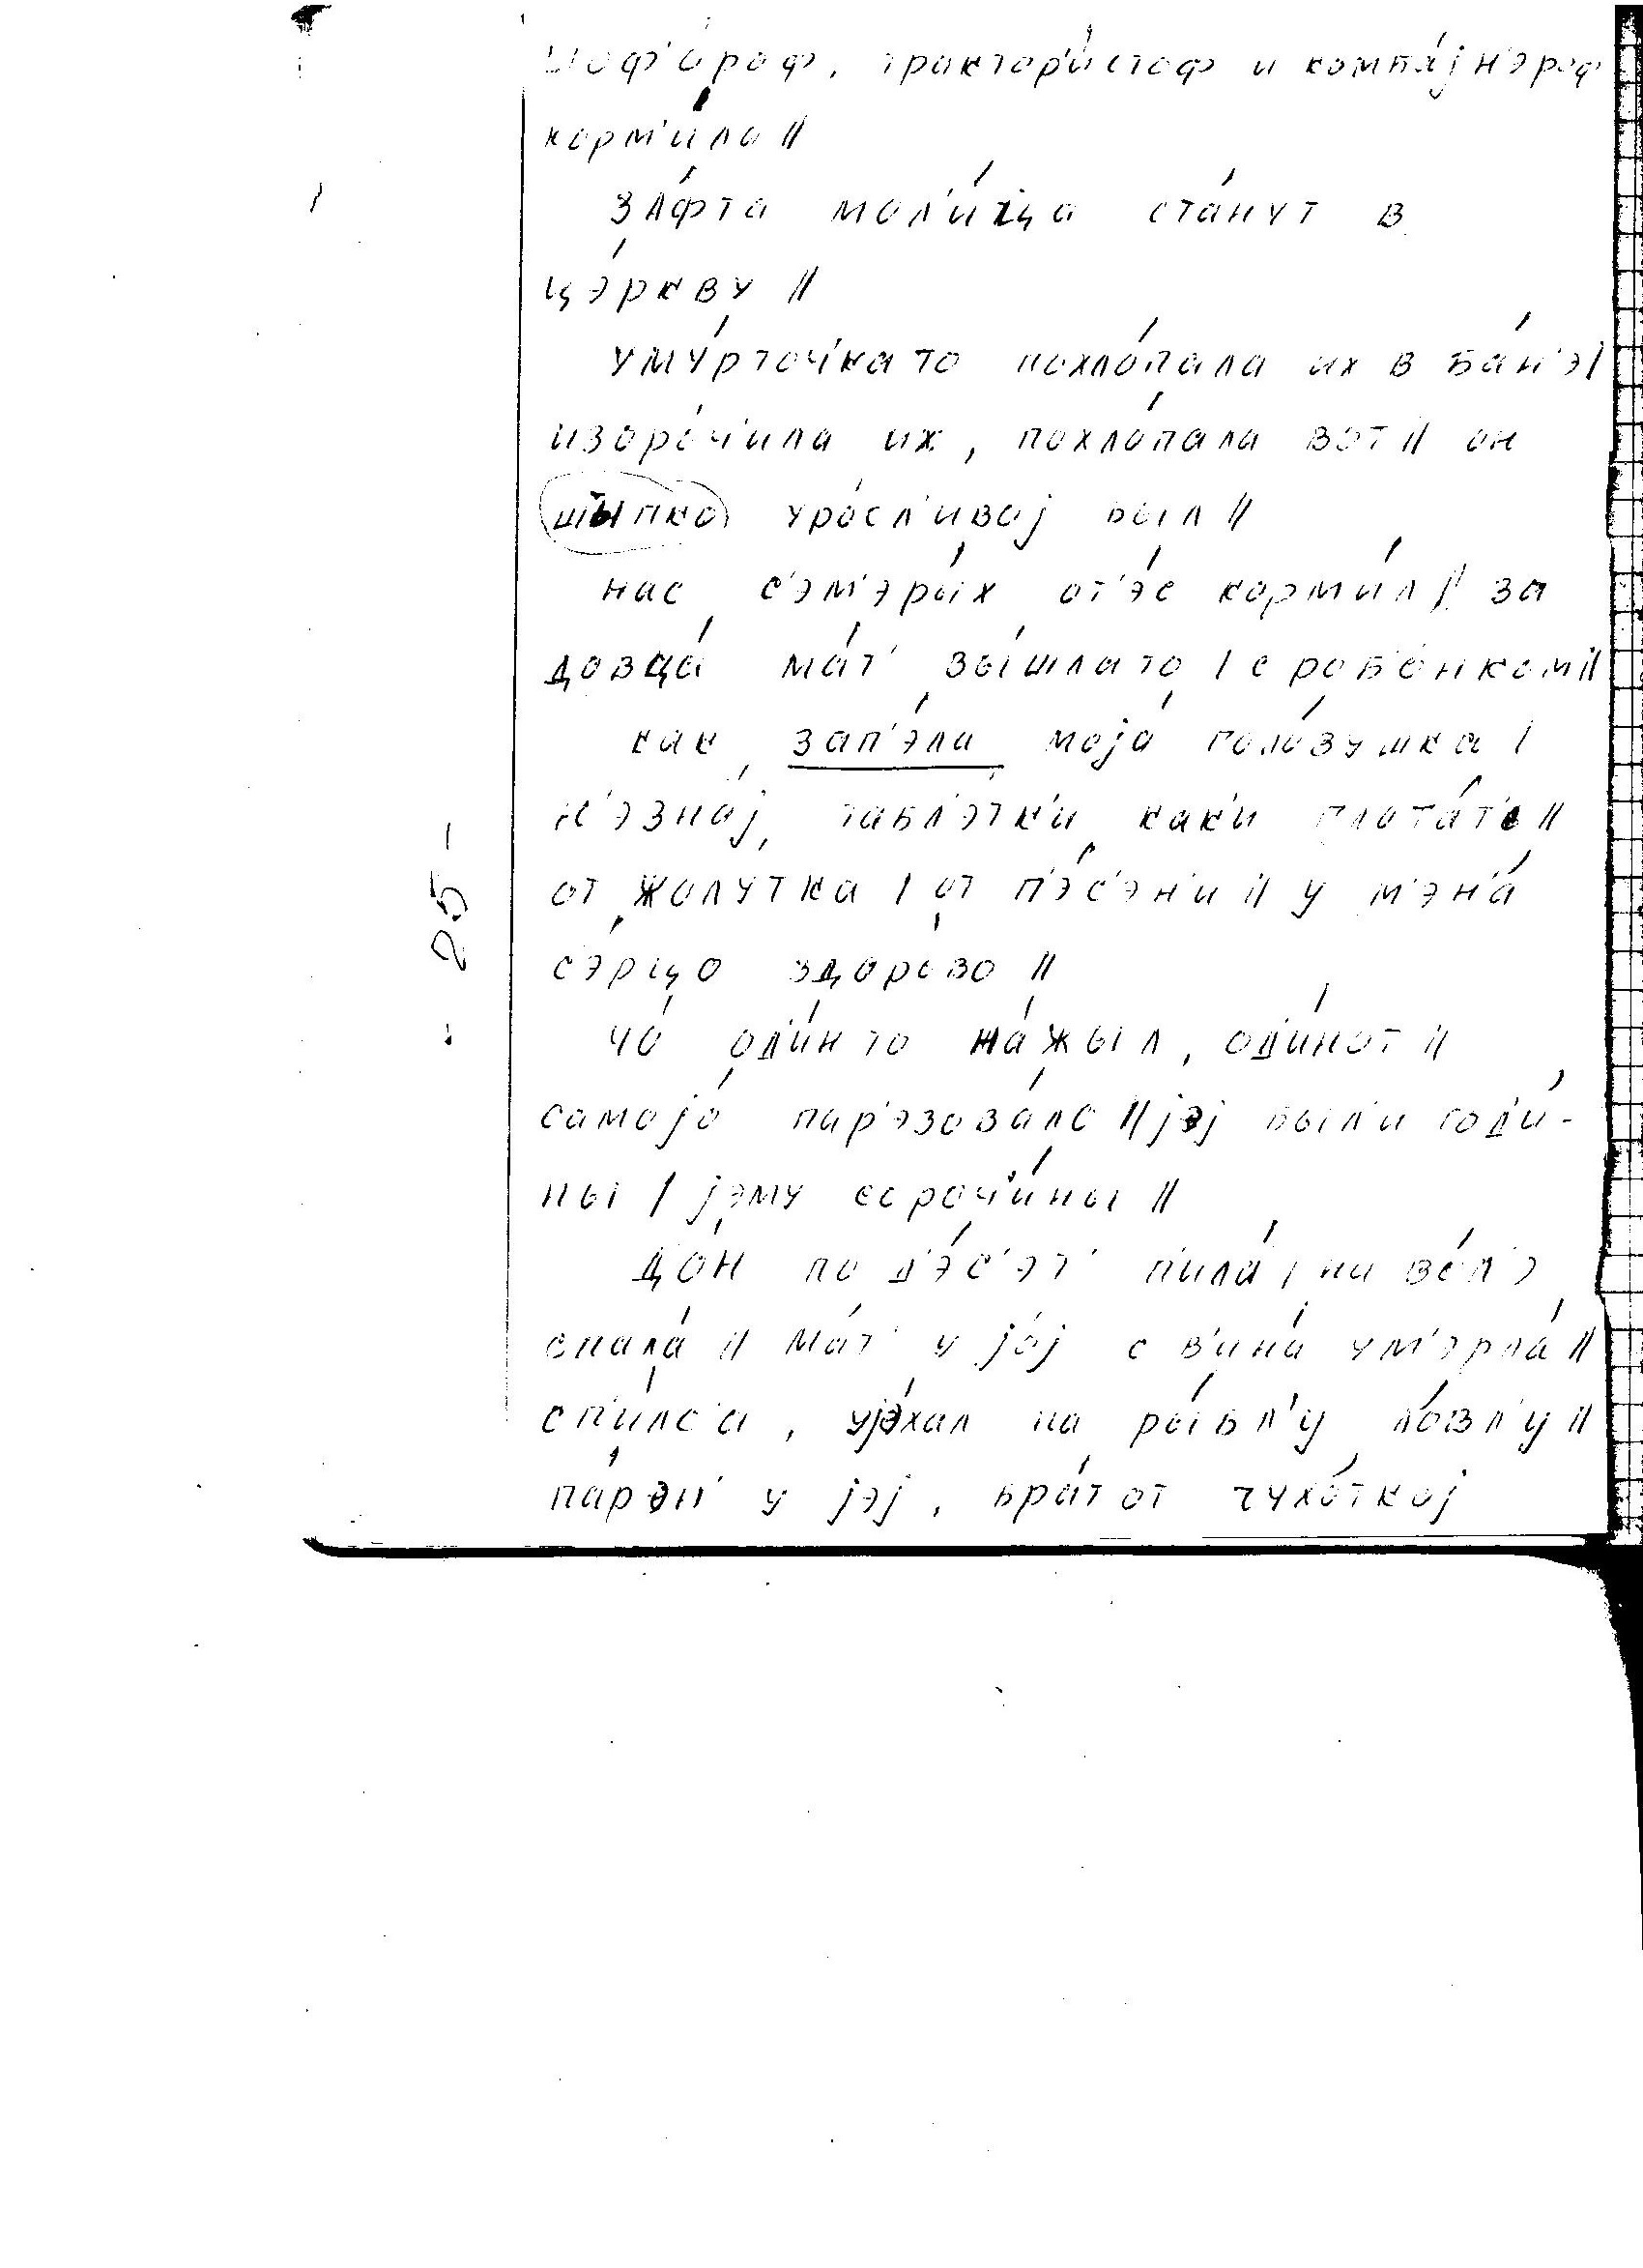 шоф'о́роф, трактор'и́стоф и комба́јн'эроф
корм'и́ла ||
за́фта мол'и́цца ста́нут в
цэ́ркву ||
уму́рточ'ка то похло́пала их в ба́н'э |
изоро́ч'ила их, похло́пала вот || он
шы́пко уро́сл'ивој был ||
нас с'эм'эры́х от'э́с корм'и́л || за
довца́ ма́т' вы́шла то | с роб'о́нком ||
как зап'э́ла моја́ голо́вушка |
н'э знај, табл'э́тк'и как'и глота́т' ||
от жолутка | от п'э́с'эн'и || у м'эн'а́
сэ́рцо здоро́во ||
ч'о́ од'и́н то на́жыл, од'и́н от ||
самојо́ пар'эзова́лс || јэј был'и год'и́-
ны | јэму́ сороч'и́ны ||
до́н по д'э́с'эт' п'ила́, на во́л'э
спала́ || ма́т' у јо́ј с в'ина́ ум'эрла́ ||
сп'и́лс'а, ујэ́хал на ры́бл'у ло́вл'у ||
па́рэн' у јэј, бра́т от чухо́ткој
- 25 -